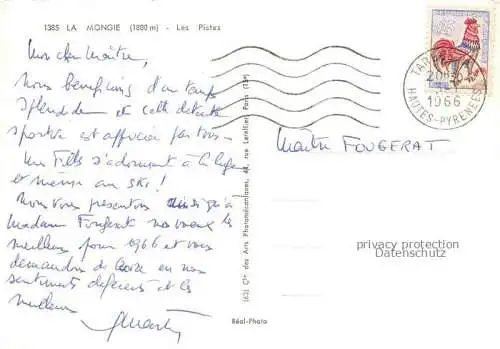 1385 LA MONGIE (1800 m) - Les Pistes
Mon cher Maître,
Nous bénéficions d'un temps
splendide et cette détente
sportive est appréciée par tous -
Les s'adonnent à la luge
et même au ski!
Nous vous présentons ainsi qu'à
Madame Fougerat nos voeux les
meilleurs pour 1966 et vous
demandons de croire en nos
sentiments déférents et les
meilleurs
Réal-Photo
(63) Cie des Arts Photomécaniques, 44, rue Letellier, Paris (15e)
TARBES
1966
HAUTES-PYRENEES
Maître FOUGERAT
privacy protection
Datenschutz